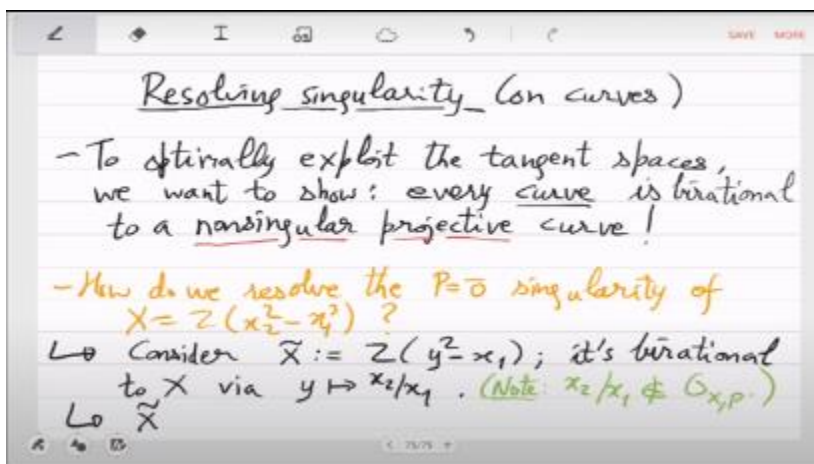 SAVE MORE
Resolving singularity (on curves)
- To optimally exploit the tangent spaces,
we want to show: every curve is birational
to a nonsingular projective curve!
- How do we resolve the P=0̄ singularity of
X = Z(x₂² - x₁³) ?
↳ Consider X̃ := Z(y² - x₁); it's birational
to X via y ↦ x₂/x₁. (Note: x₂/x₁ ∉ O_{X,P}.)
↳ X̃
< 75/75 +